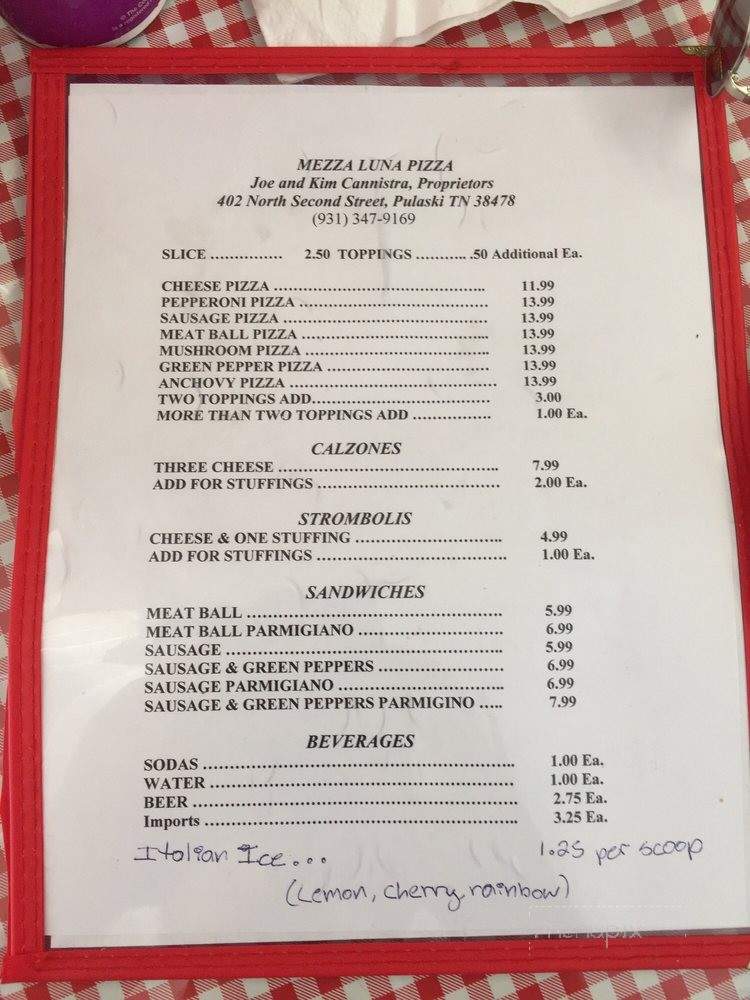 MEZZA LUNA PIZZA
Joe and Kim Cannistra, Proprietors
402 North Second Street, Pulaski TN 38478
(931) 347-9169
SLICE ............... 2.50 TOPPINGS .......... .50 Additional Ea.
CHEESE PIZZA .................................................. 11.99
PEPPERONI PIZZA ............................................. 13.99
SAUSAGE PIZZA ................................................ 13.99
MEAT BALL PIZZA ............................................. 13.99
MUSHROOM PIZZA ............................................ 13.99
GREEN PEPPER PIZZA ....................................... 13.99
ANCHOVY PIZZA ................................................ 13.99
TWO TOPPINGS ADD.......................................... 3.00
MORE THAN TWO TOPPINGS ADD ................ 1.00 Ea.
CALZONES
THREE CHEESE .................................................. 7.99
ADD FOR STUFFINGS .......................................... 2.00 Ea.
STROMBOLIS
CHEESE & ONE STUFFING .................................. 4.99
ADD FOR STUFFINGS .......................................... 1.00 Ea.
SANDWICHES
MEAT BALL ........................................................ 5.99
MEAT BALL PARMIGIANO ................................. 6.99
SAUSAGE ............................................................ 5.99
SAUSAGE & GREEN PEPPERS ............................ 6.99
SAUSAGE PARMIGIANO ..................................... 6.99
SAUSAGE & GREEN PEPPERS PARMIGINO ..... 7.99
BEVERAGES
SODAS ................................................................. 1.00 Ea.
WATER ................................................................ 1.00 Ea.
BEER .................................................................... 2.75 Ea.
Imports .................................................................. 3.25 Ea.
Italian Ice... 1.25 per scoop
(Lemon, cherry, rainbow)